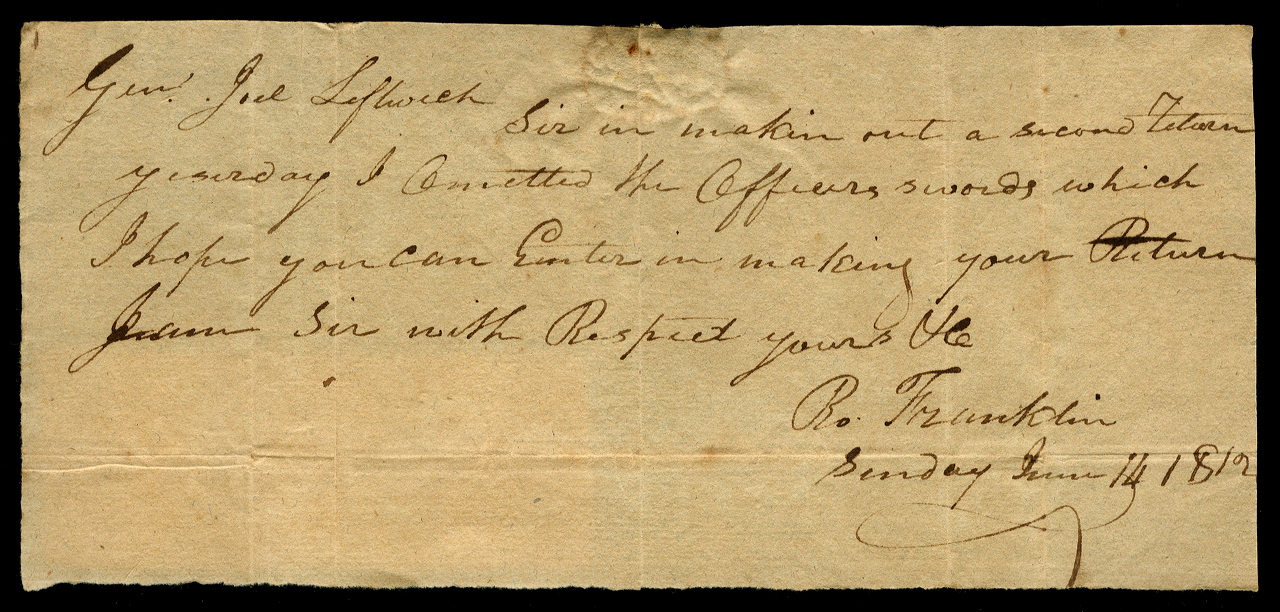 Genl. Joel Leftwich
Sir in makin out a second Return
yeserday I Ometted the Officers swords which
I hope you can Enter in making your Return
I am Sir with Respect yours &c
Ro. Franklin
Sunday June 14 1812